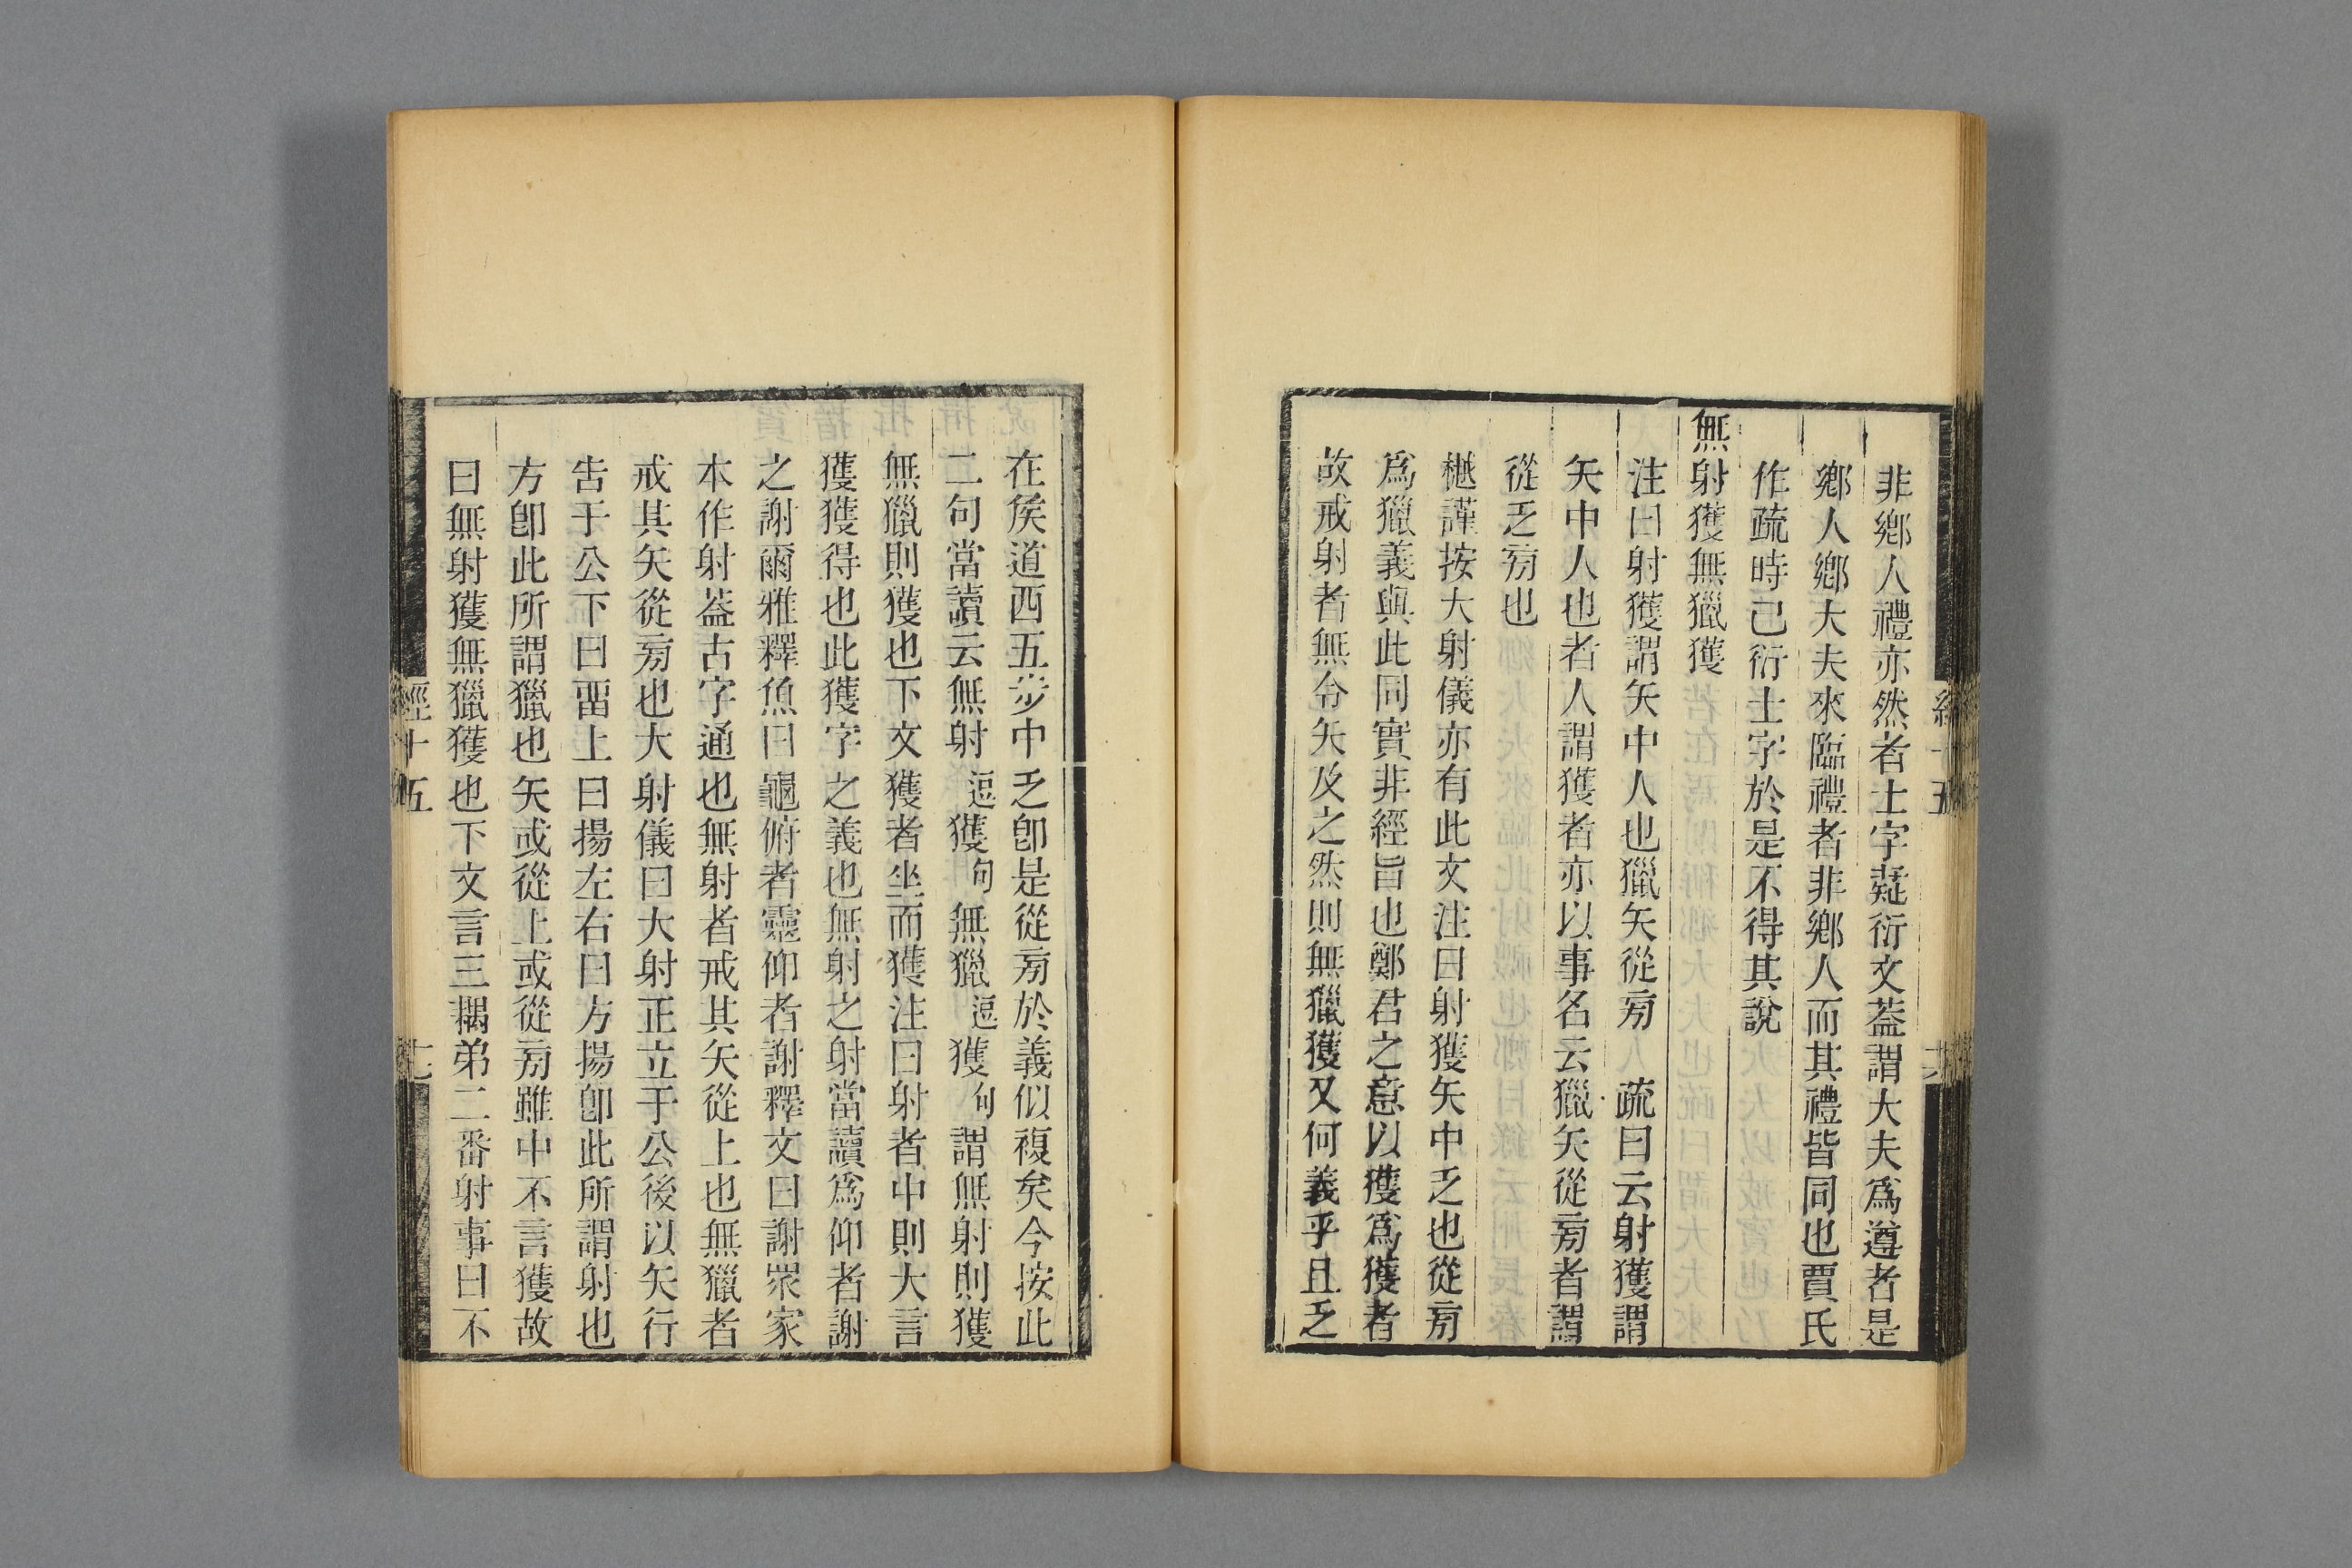 非鄉人禮亦然者士字疑衍文葢謂大夫爲遵者是
鄉人鄉大夫來臨禮者非鄉人而其禮皆同也賈氏
作疏時已衍士字於是不得其說
無射獲無獵獲
注曰射獲謂矢中人也獵矢從㫄　疏曰云射獲謂
矢中人也者人謂獲者亦以事名云獵矢從㫄者謂
從乏㫄也
樾謹按大射儀亦有此文注曰射獲矢中乏也從㫄
爲獵義與此同實非經旨也鄭君之意以獲爲獲者
故戒射者無令矢及之然則無獵獲又何義乎且乏
經十五
在矦道西五步中乏卽是從㫄於義似複矣今按此
二句當讀云無射逗獲句無獵逗獲句謂無射則獲
無獵則獲也下文獲者坐而獲注曰射者中則大言
獲獲得也此獲字之義也無射之射當讀爲仰者謝
之謝爾雅釋魚曰龜俯者靈仰者謝釋文曰謝眾家
本作射葢古字通也無射者戒其矢從上也無獵者
戒其矢從㫄也大射儀曰大射正立于公後以矢行
告于公下曰畱上曰揚左右曰方揚卽此所謂射也
方卽此所謂獵也矢或從上或從㫄雖中不言獲故
曰無射獲無獵獲也下文言三耦弟二番射事曰不
經十五
十七